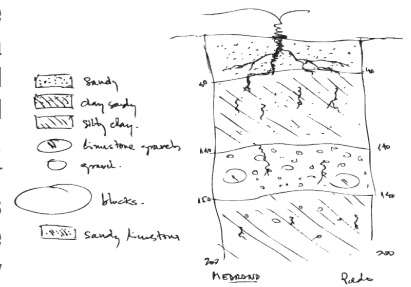 sandy
clay sandy
silty clay.
limestone gravels
gravel.
blocks.
sandy limestone
40
40
110
110
150
140
200
200
MEDRAND